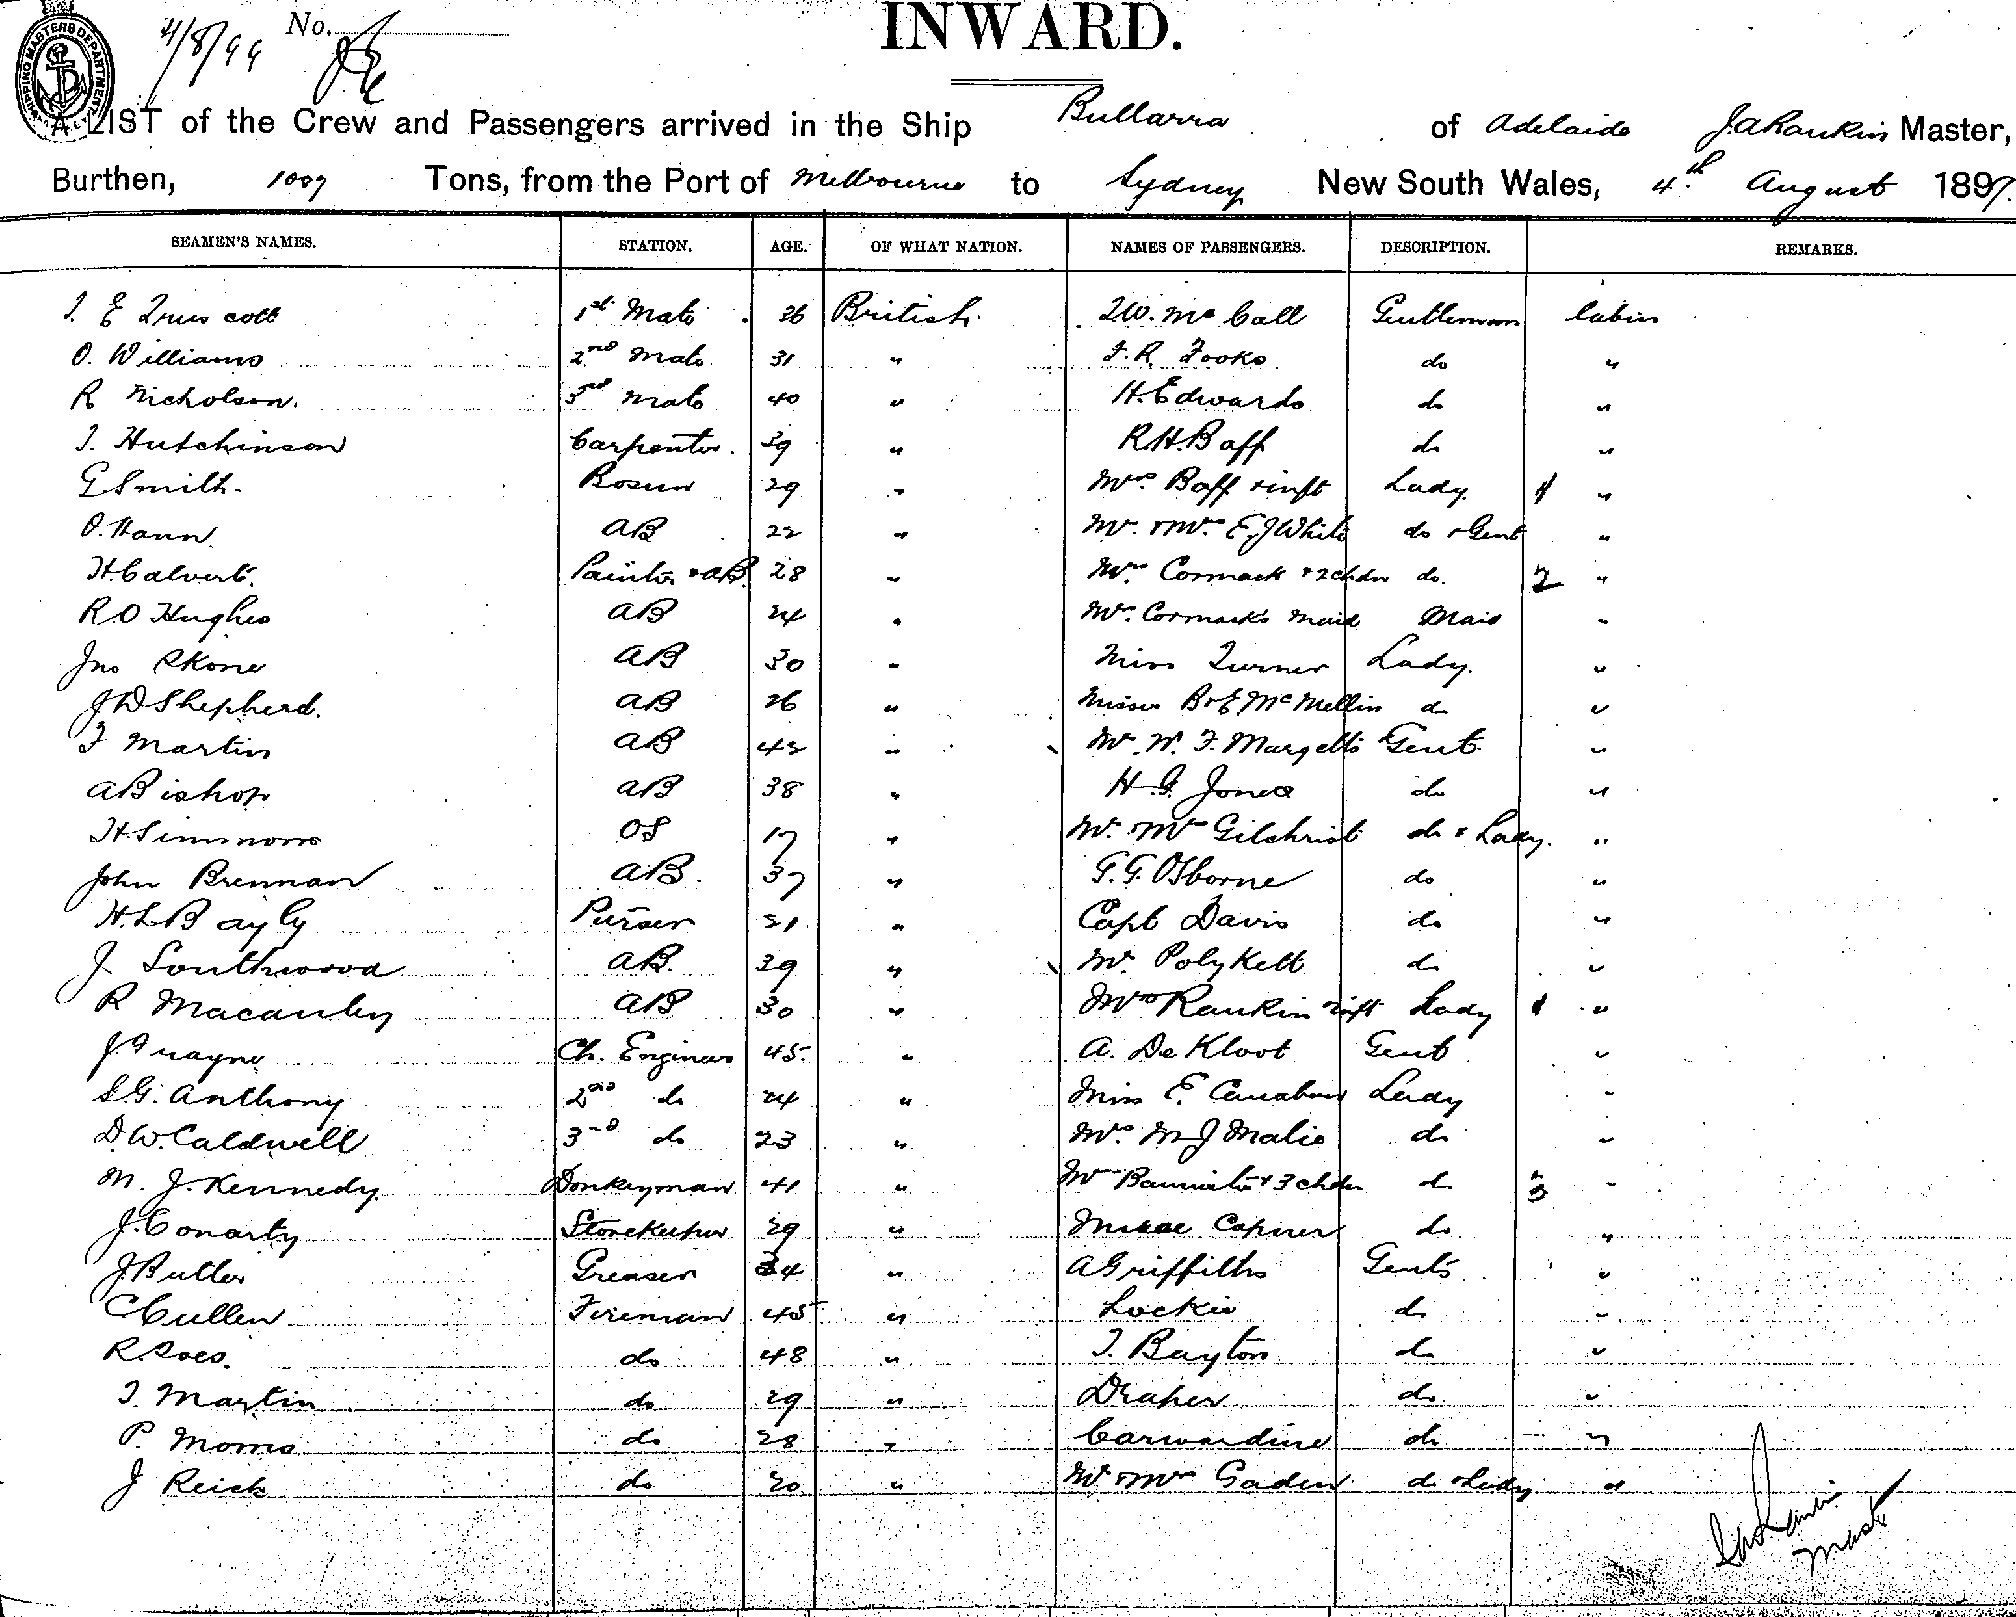 4/8/99 No.
INWARD.
A LIST of the Crew and Passengers arrived in the Ship Bullarra of Adelaide J.A Rankin Master,
Burthen, 1009 Tons, from the Port of Melbourne to Sydney New South Wales, 4th August 189
SEAMEN'S NAMES. STATION. AGE. OF WHAT NATION. NAMES OF PASSENGERS. DESCRIPTION. REMARKS.
1st Mate 26 British McCall Gentleman Cabin
O. Williams 2nd Mate 31 " F.R. Fooks do "
R Nicholson. 3rd Mate 40 " H. Edwards do "
Hutchinson Carpenter. 39 " R.H. Baff do "
G Smith. Bosun 29 " Mrs. Baff & inft Lady 1 "
O. Hann AB 22 " Mr. & Mrs. E.J White do & Gent "
H. Calvert. Painter & AB 28 " Mrs Cormack & 2 chdn do. 2 "
R O Hughes AB 24 " Mrs. Cormack's maid Maid "
Jno Skone AB 30 " Miss Turner Lady. "
J D Shepherd. AB 26 " Misses B & E McMellin do "
Martin AB 42 " Mr. W. F. Margetts Gent. "
A Bishop AB 38 " H. G. Jones do "
H. Simmons OS 17 " Mr. & Mrs Gilchrist do & Lady. "
John Brennan AB. 37 " G. G. Osborne do "
H. L Bayly Purser 21 " Capt Davis do "
J Southwood AB. 39 " Mr. Polykett do "
R Macauley AB 30 " Mrs Rankin & inft Lady 1 "
J. Quayne Ch. Engineer 45 " A. De Kloot Gent "
S.G. Anthony 2nd do 24 " Miss E. Lady "
D. W. Caldwell 3rd do 23 " Mrs. M J Malie do "
M. J. Kennedy Donkeyman 41 " Bannister & 3 chdn do 3 "
J. Conarty Storekeeper 29 " do "
J Butler Greaser 34 " A Griffiths Gents "
C Cullen Fireman 45 " Lockie do "
R. do 48 " Bayton do "
Martin do 29 " Draper do "
P. Morris do 28 " Carwardine do "
J Reick do 20 " Mr & Mrs Gaden do & Lady "
J A Rankin
Master